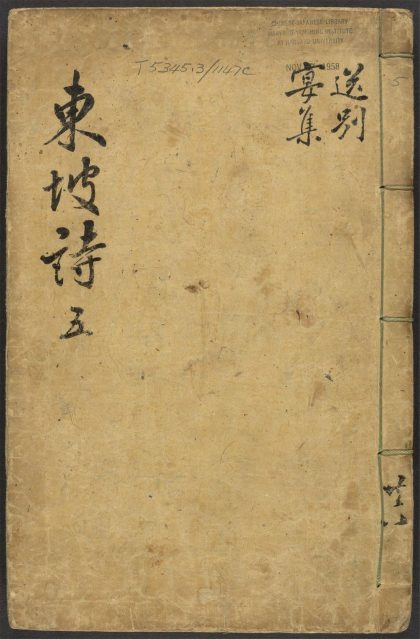 CHINESE-JAPANESE LIBRARY
HARVARD-YENCHING INSTITUTE
AT HARVARD UNIVERSITY
NOV 1958
T 5345.3/1147c
送別
宴集
東坡詩 五
共八